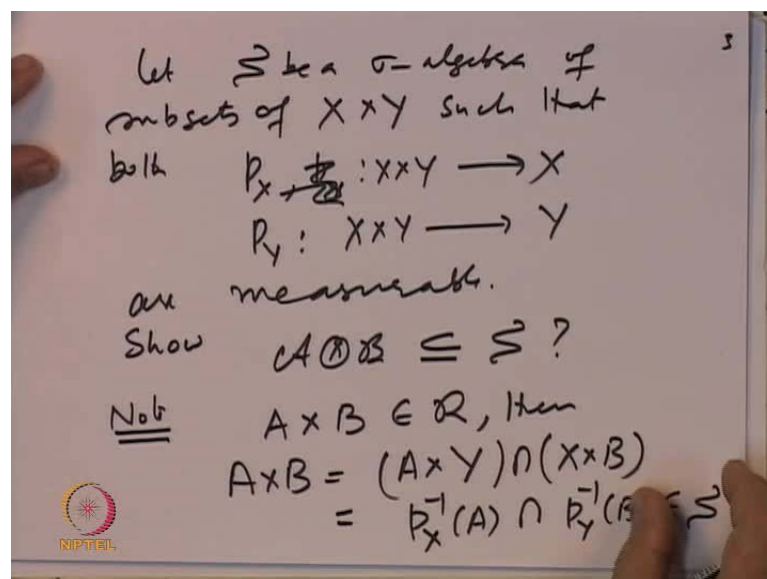 3
Let S be a σ-algebra of
subsets of X × Y such that
both p_X : X×Y ⟶ X
p_Y : X×Y ⟶ Y
are measurable.
Show A⊗B ⊆ S ?
Note A × B ∈ R, then
A×B = (A×Y)∩(X×B)
= p_X^{-1}(A) ∩ p_Y^{-1}(B) ∈ S
NPTEL